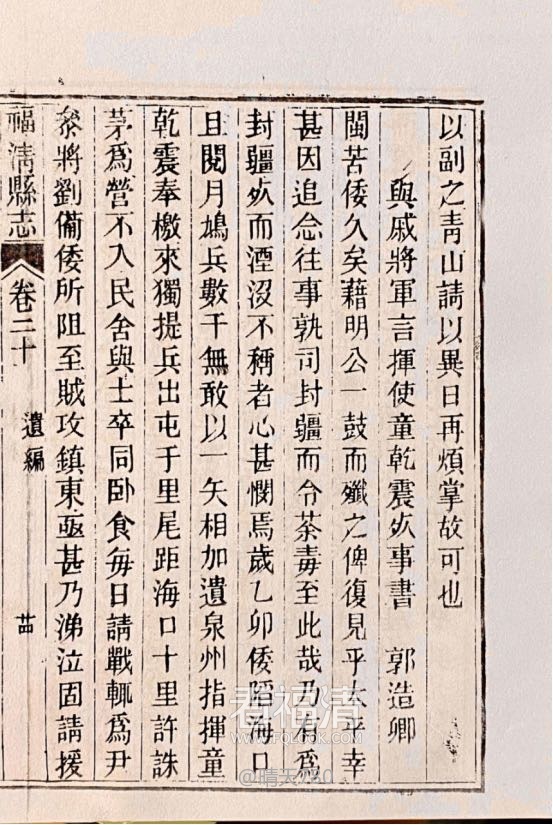 以副之靑山請以異日再煩掌故可也
與戚將軍言揮使童乾震死事書 郭造卿
閩苦倭久矣藉明公一鼓而殲之俾復見乎太平幸
甚因追念往事孰司封疆而令荼毒至此哉乃有爲
封疆死而湮沒不稱者心甚憫焉歲乙卯倭陷海口
且閱月鳩兵數千無敢以一矢相加遺泉州指揮童
乾震奉檄來獨提兵出屯于里尾距海口十里許誅
茅爲營不入民舍與士卒同卧食每日請戰輒爲尹
叅將劉備倭所阻至賊攻鎮東亟甚乃涕泣固請援
福淸縣志 卷二十 遺編 廿四
看福清
WWW.FQLOOK.COM